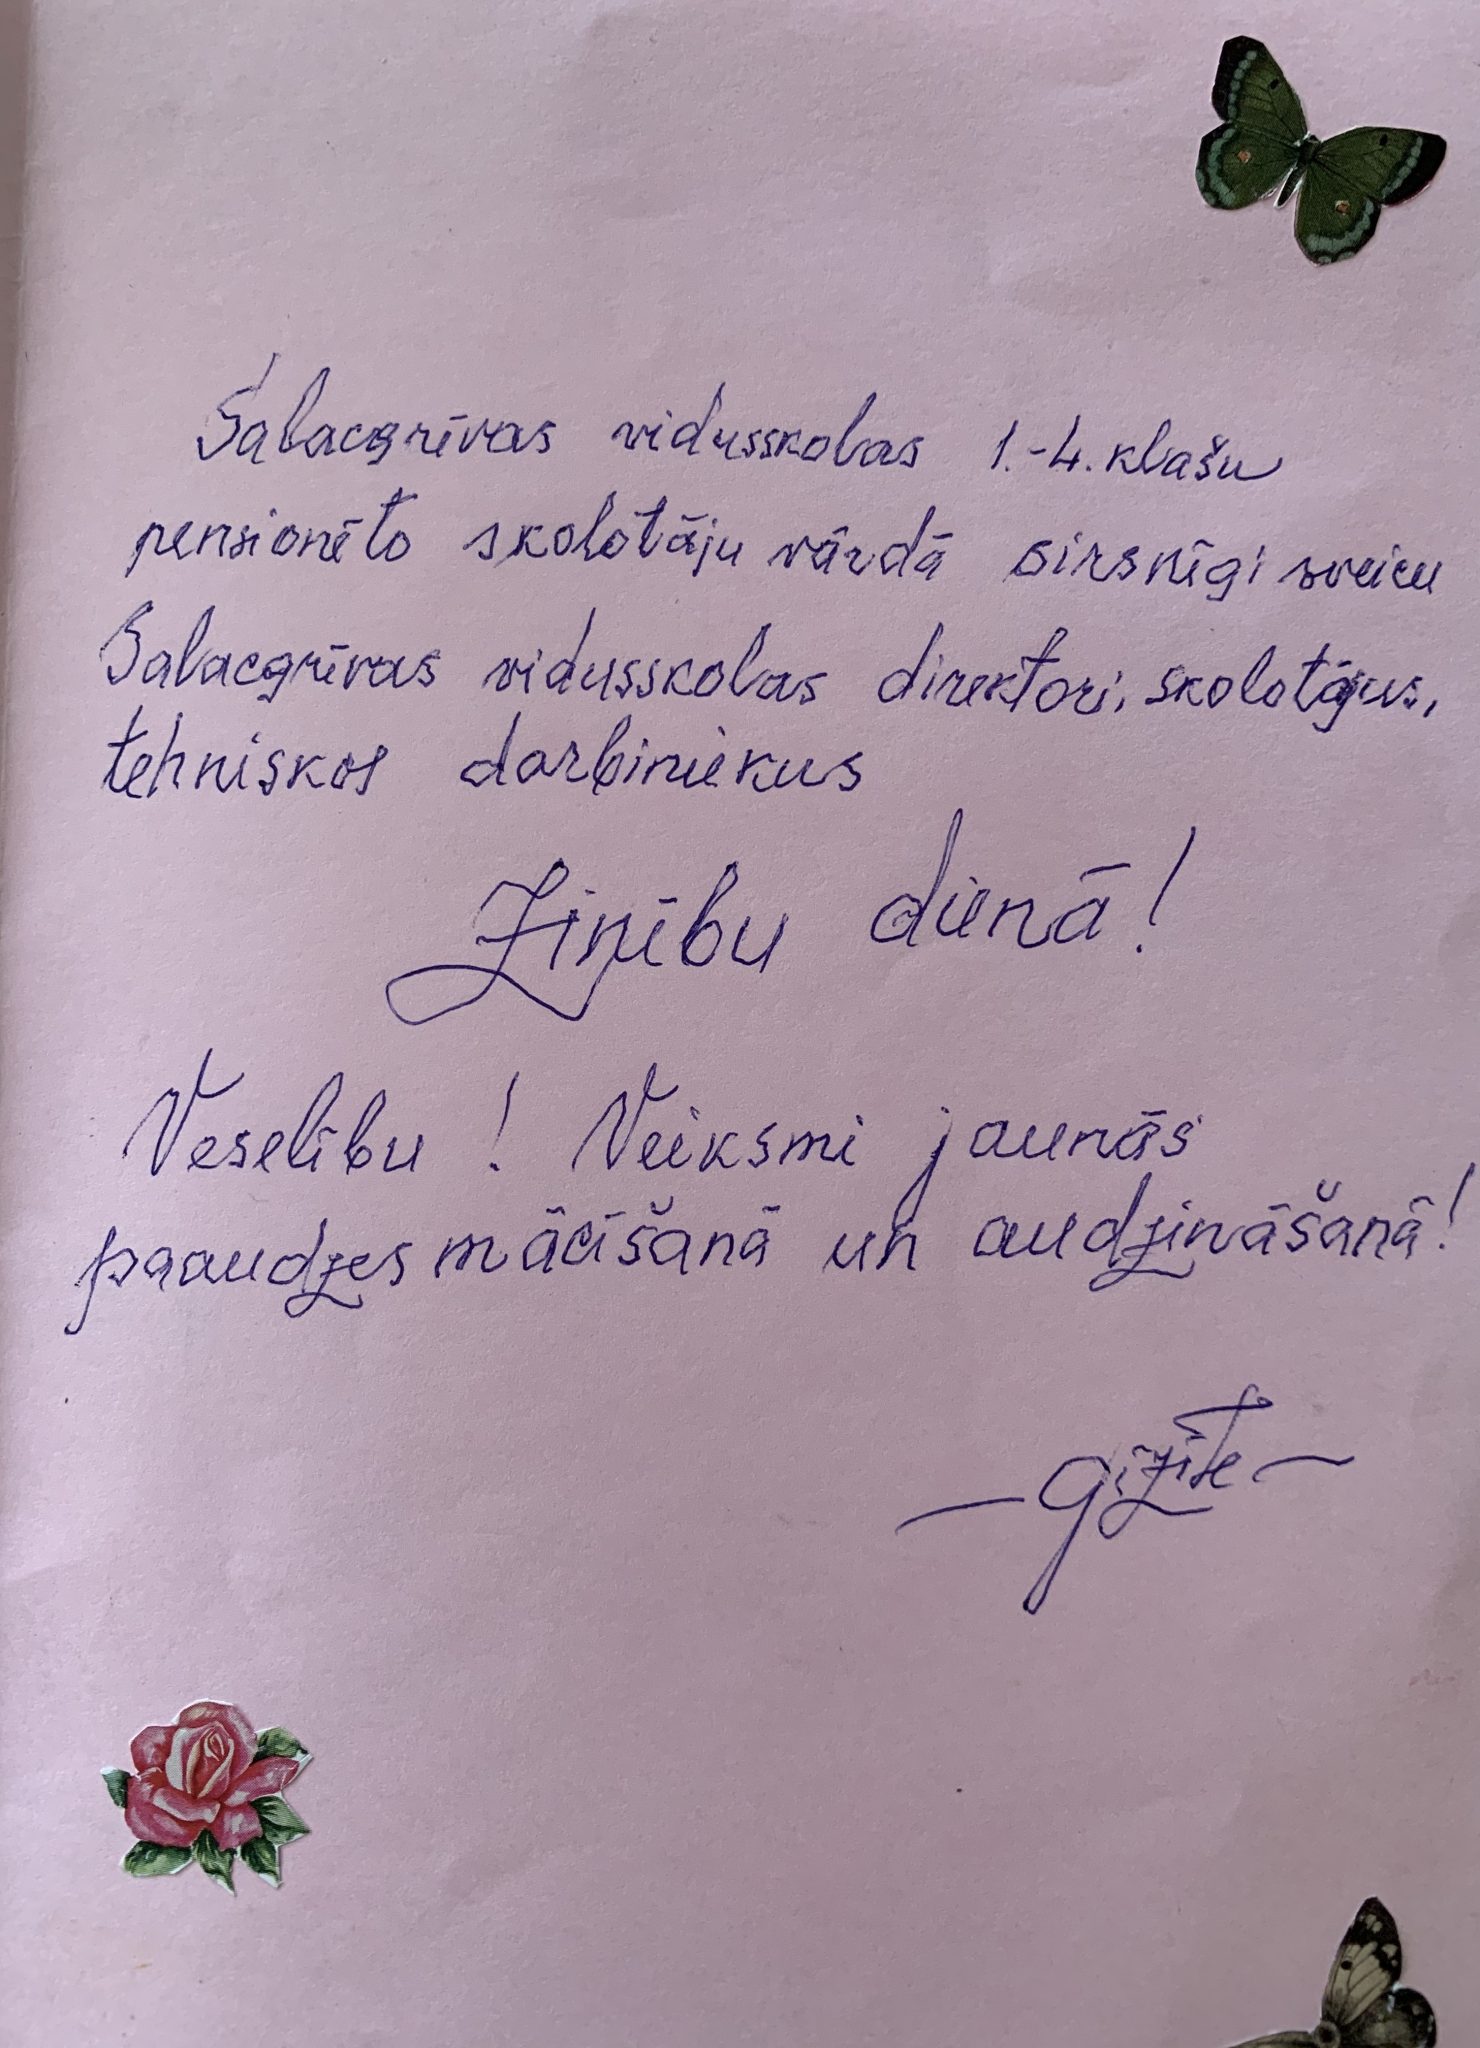 Salacgrīvas vidusskolas 1.-4. klašu
pensionēto skolotāju vārdā sirsnīgi sveicu
Salacgrīvas vidusskolas direktori, skolotājus,
tehniskos darbiniekus
Zinību dienā!
Veselību! Veiksmi jaunās
paaudzes mācīšanā un audzināšanā!